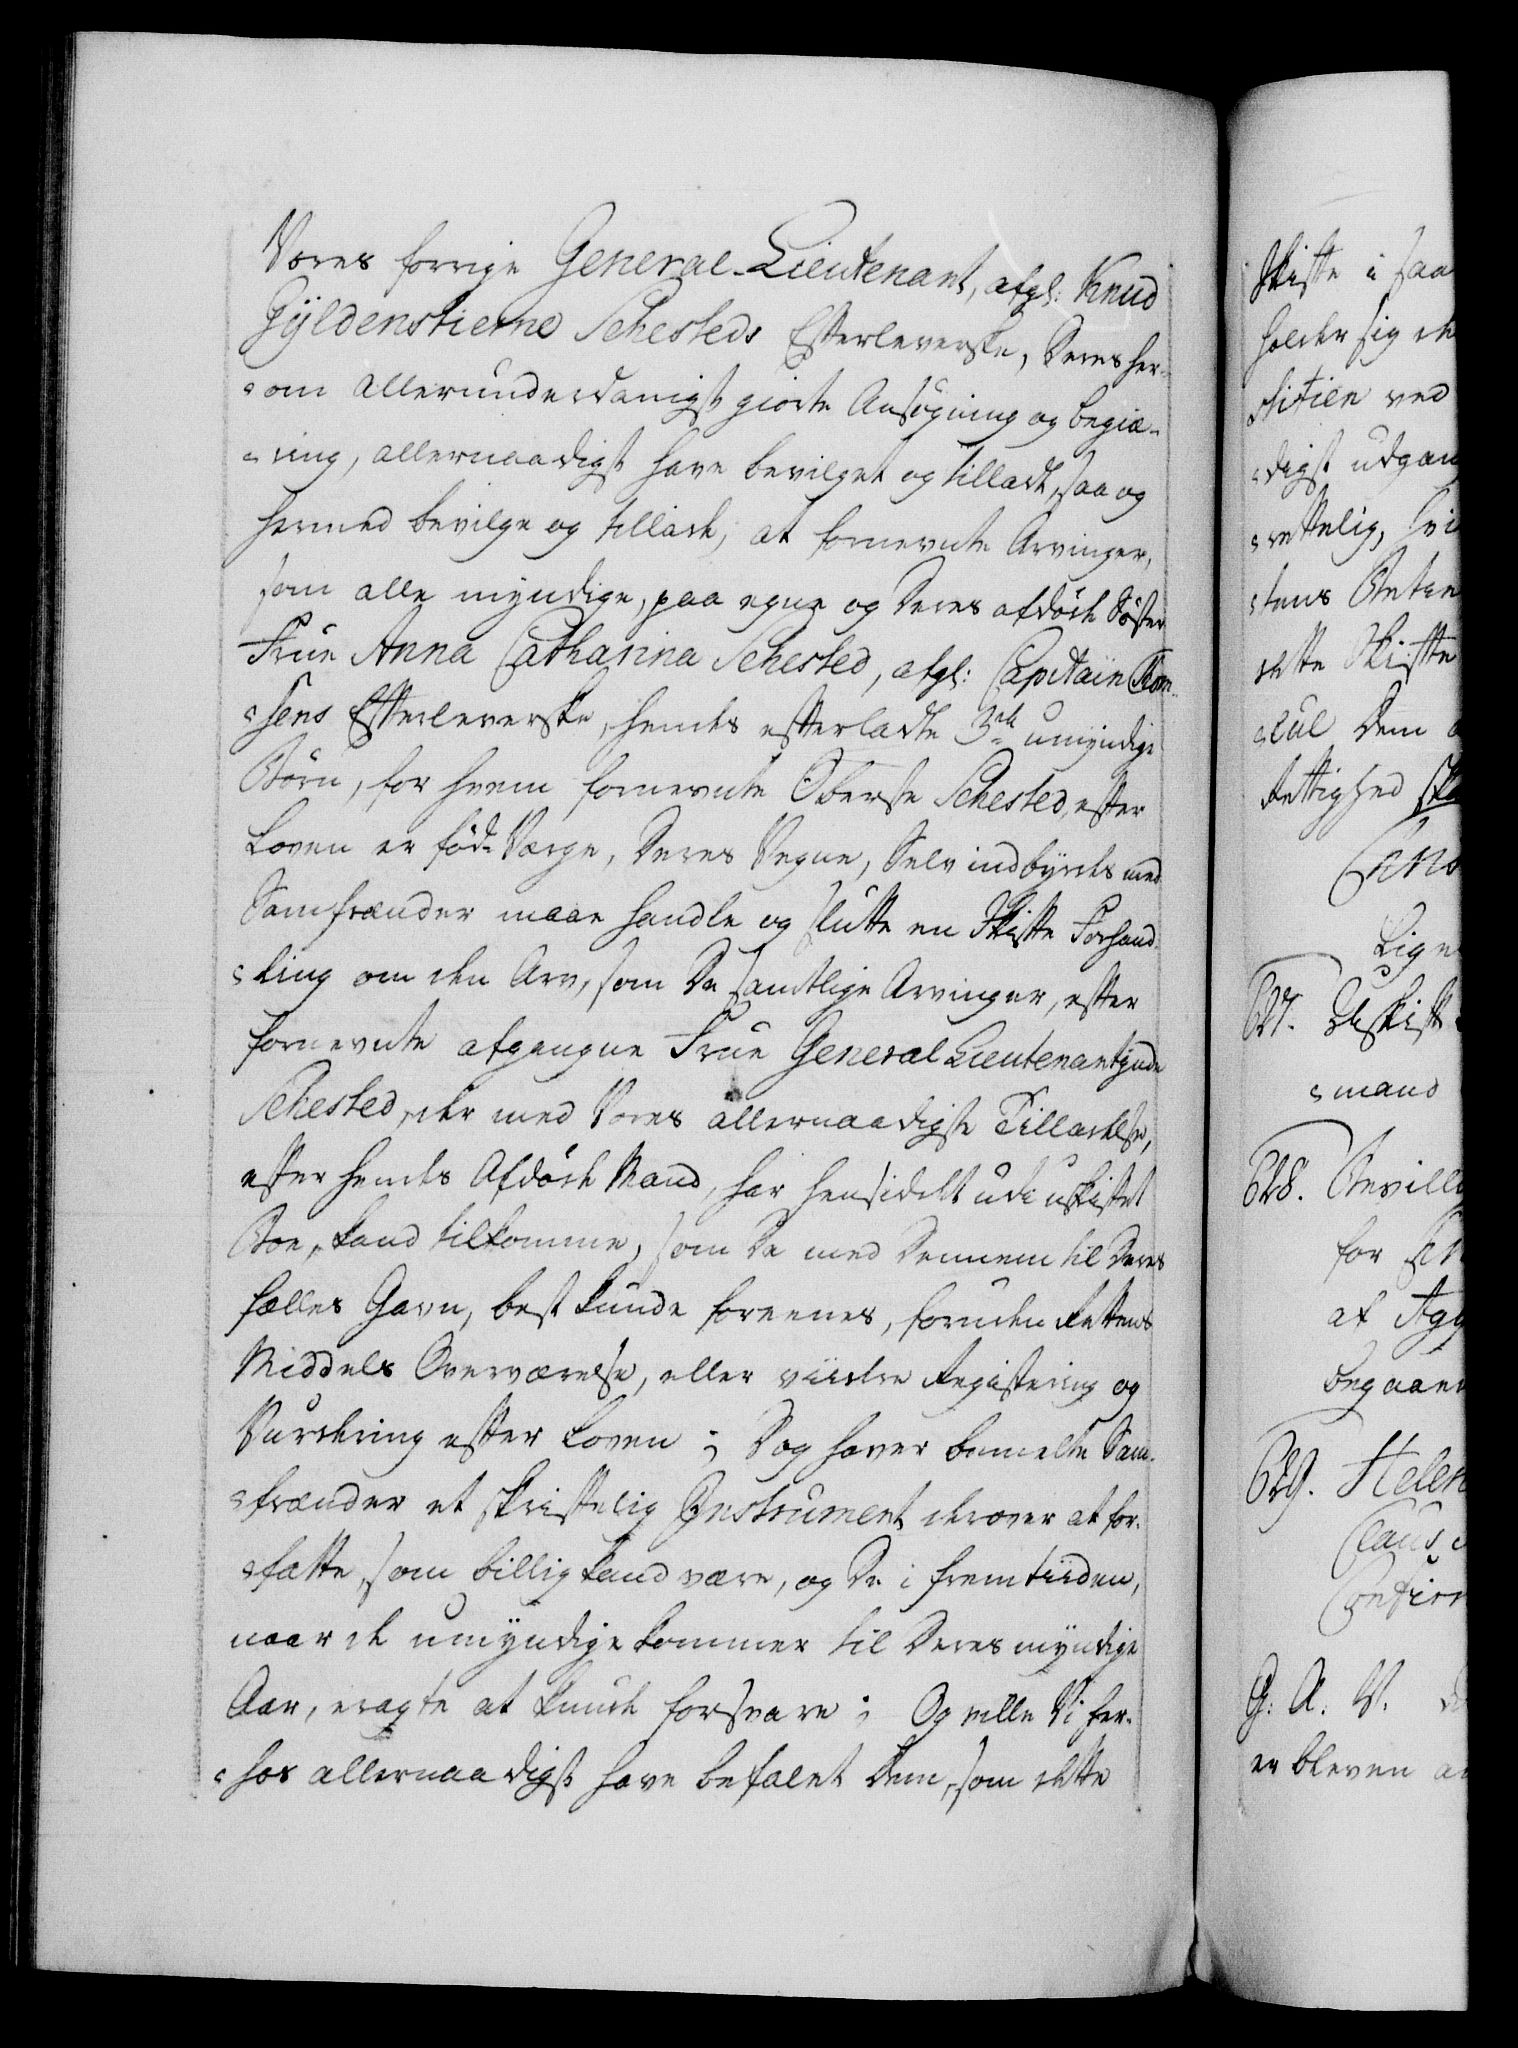 Vores forrige General-Lieutenant, afgl: Knud
Gyldenstierne Sehesteds Efterleverske, Deres her-
om allerunderdanigst giorte Ansøgning og begiæ-
ring, allernaadigst have bevilget og tilladt, saa og
hermed bevilge og tillade, at fornevnte Arvinger,
som alle myndige, paa egne og Deres afdøde Søster
Frue Anna Catharina Sehested, afgl: Capitain
sens Efterleverske, hendes efterladte 3de umyndige
Børn, for hvem fornevnte Oberste Sehested, efter
Loven er fød Værge, Deres Vegne, Selv indbyrdes med
Samfrænder maae handle og slutte en Skifte Forhand-
ling om den Arv, som De samtlige Arvinger, efter
fornevnte afgangne Frue General Lieutenantinde
Sehested, der med Vores allernaadigste Tilladelse,
efter hendes Afdøde Mand, har hensiddet udi uskiftet
Boe, kand tilkomme, som De med Dennem til Deres
fælles Gavn, best kunde foreenes, foruden Rettens
Middels Overværelse, eller viidere Registering og
Vurdering efter Loven ; Dog haver bemelte Sam-
frænder et skriftelig Instrument derover at for-
fatte, som billig kand være, og De i fremtiiden,
naar de umyndige kommer til Deres myndige
Aar, eragte at kunde forsvare ; Og ville Vi her-
hos allernaadigst have befalet Dem, som dette
Skifte i saa
holder sig
ved
digst udgan
rettelig,
dette Skifte
Dem
Rettighed
627.
mand
628. Bevilling
for
af
begaaen
629. Helen
Claus
G: A: V.
er bleven